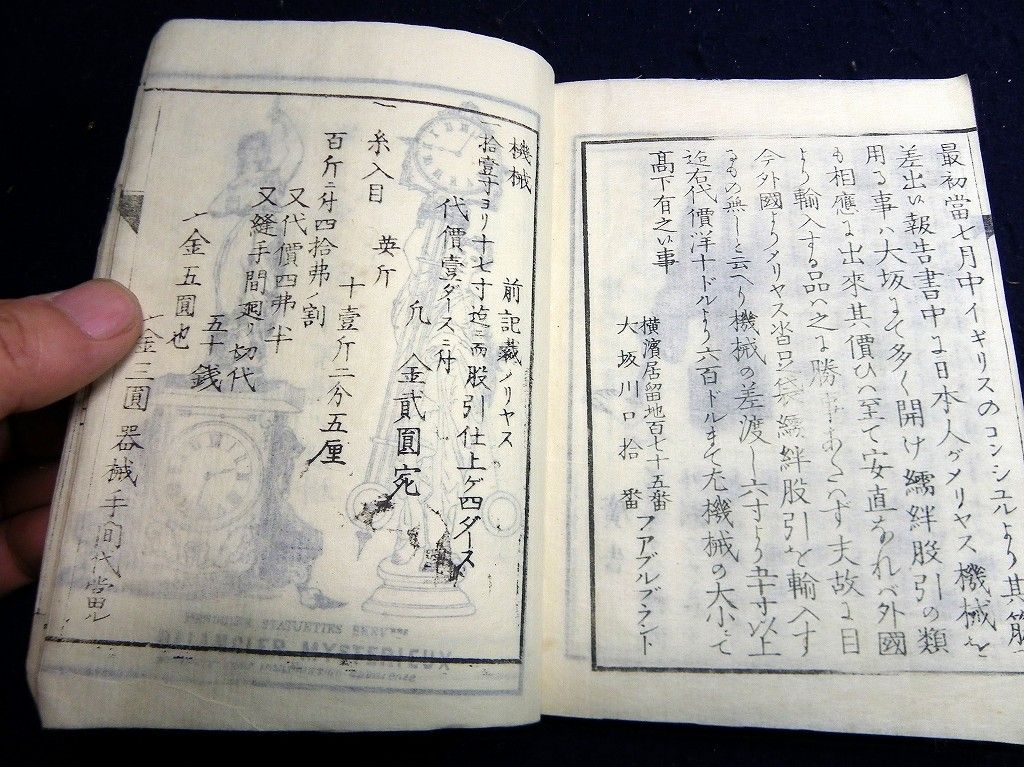 最初當七月中イギリスのコンシユルより其筋
差出い報告書中に日本人ガメリヤス機械を
用る事ハ大坂にて多く開け繻絆股引の類
も相應に出來其價ひハ至て安直なれバ外國
より輸入する品ハ之に勝事あたハず夫故に目
今外國よりメリヤス沓足袋繻絆股引を輸入す
るもの無しと云へり機械の差渡し六寸より五十寸以上
迄右代價洋十ドルより六百ドルまて尤機械の大小にて
高下有之い事
橫濱居留地百七十五番
大坂川口拾番
フアブルブラント
前記載メリヤス
機械
一拾壹寸ヨリ十七寸迄ニ而股引仕上ケ四ダース
代價壹ダースニ付
凢 金貳圓宛
一糸入目 英斤
十壹斤二分五厘
百斤ニ付四拾弗ノ割
又代價四弗半
又縫手間廻リ切代
五十錢
一金五圓也
一金三圓 器械手間代當ル
PENDULES STATUETTES
MYSTERIEUX